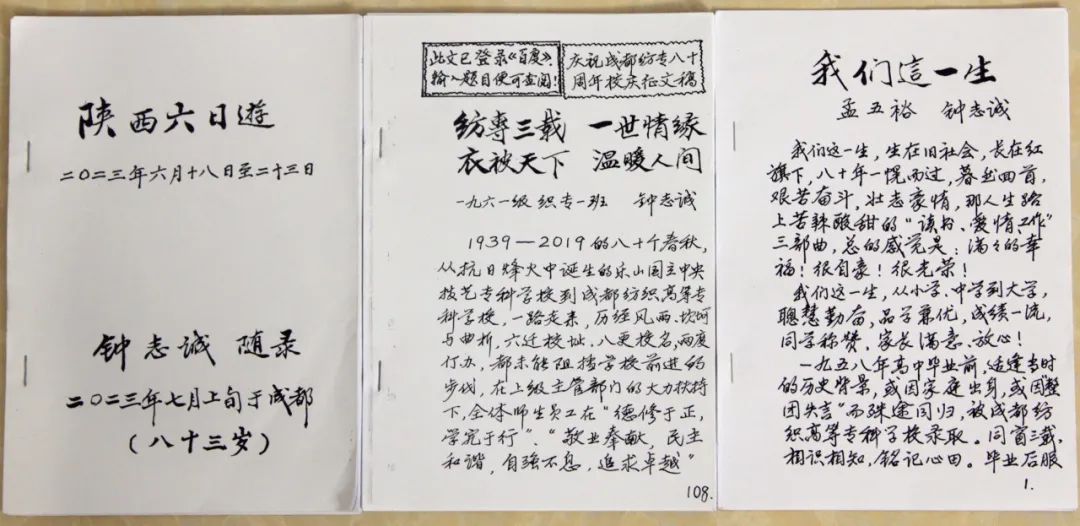 陕西六日遊
二〇二三年六月十八日至二十三日
钟志诚 随录
二〇二三年七月上旬于成都
(八十三岁)
此文已登录《百度》,
输入题目便可查阅!
庆祝成都纺专八十
周年校庆征文稿
纺專三载 一世情缘
衣被天下 温暖人间
一九六一级织专一班 钟志诚
1939—2019的八十个春秋,
从抗日烽火中诞生的乐山国立中央
技艺专科学校到成都纺织高等专
科学校,一路走来,历经风雨、坎坷
与曲折,六迁校址、八更校名,两度
停办,都未能阻挡学校前进的
步伐,在上级主管部门的大力扶持
下,全体师生员工在“德修于正,
学究于行”、“敬业奉献,民主
和谐,自强不息,追求卓越”
108.
我们這一生
孟五裕 钟志诚
我们这一生,生在旧社会,长在红
旗下,八十年一愰而过,暮然回首,
艰苦奋斗,壮志豪情,那人生路
上苦辣酸甜的“读书、爱情、工作”
三部曲,总的感觉是:满々的幸
福!很自豪!很光荣!
我们这一生,从小学、中学到大学,
聰慧勤奋,品学兼优,成绩一流,
同学称赞、家长满意、放心!
一九五八年高中毕业前,适逢当时
的历史背景,或因家庭出身,或因“整
团失言”而殊途同归,被成都纺
织高等专科学校录取。同窗三载,
相识相知,铭记心田。毕业后服
1.